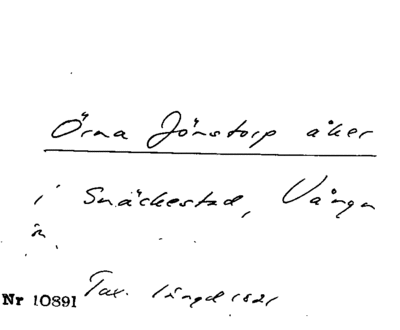 Örna Jönstorp åker
i Snäckestad, Vånga
sn.
Nr 10891 Tax. längd 1821